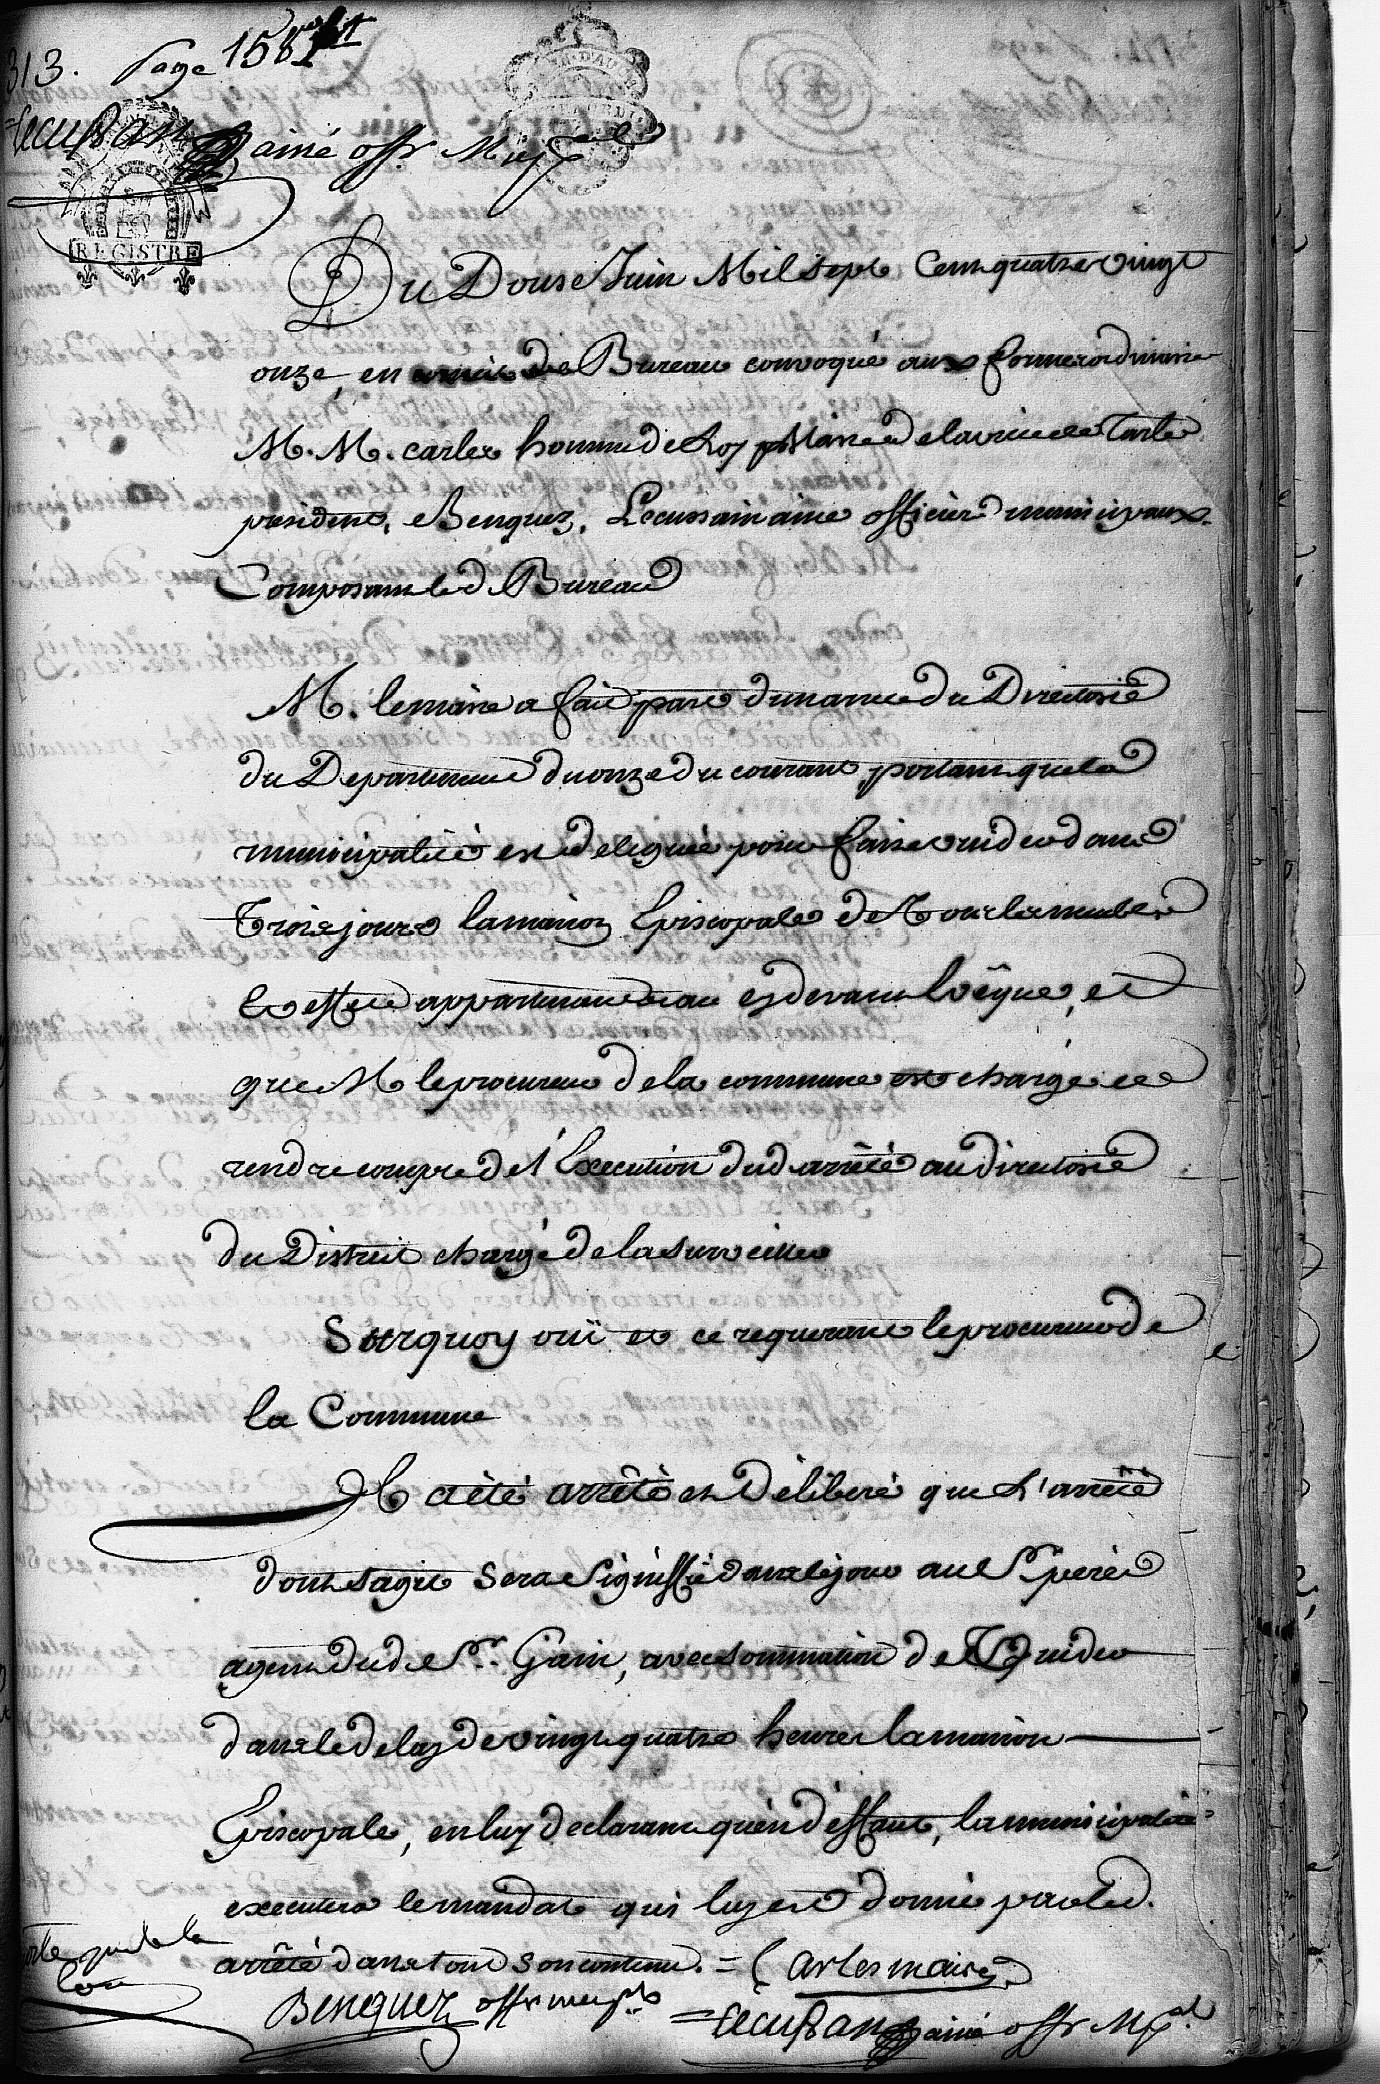 313. Page 158
Lecussan ainé offr Mupl
REGISTRE
Du Douse Juin Mil sept Cent quatre vingt
onze, en Bureau convoqué aux formes ordinaires
M. M. carles homme de Loy Maire de la ville de Tarbe
president, Benquez, Lecussain aine officiers municipaux
Composant led Bureau
M. le maire a fait part dun arrete du Directoire
du Departement du onze du courant portant que la
municipalité est deleguée pour faire vuider dans
Trois jours la maison Episcopale de Tous les meubles
et effets appartenant au cydevant Evêque, et
que M le procureur de la commune est chargé de
rendre compte de l'Execution dud arrêté au directoire
du District chargé de la surveiller
Sur quoy ouï et ce requerant le procureur de
la Commune
Il a été arrêté et Déliberé que L'arrêté
dont sagit sera signiffié dans le jour au Sr. perés
agent dud Sr. Gain, avec sommation de vuider
dans le delay de vingt quatre heures la maison
Episcopale, en luy declarant qu'en deffaut, la municipalité
executera le mandat qui luy est donné par led.
arrêté dans tout son contenu. = Carles maire
Benquez offr mupl
= Lecussan ainé offr Mpal